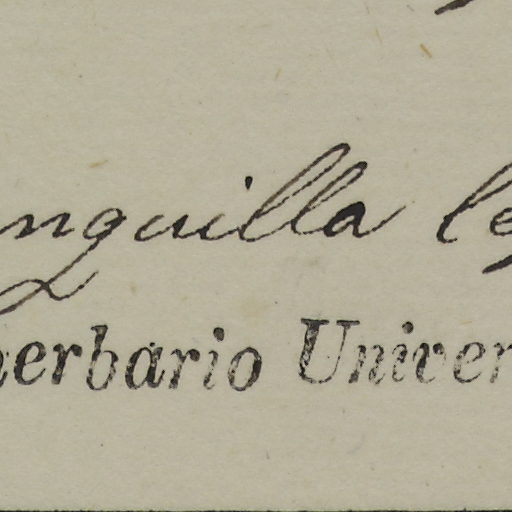 nguilla le
herbario Univer